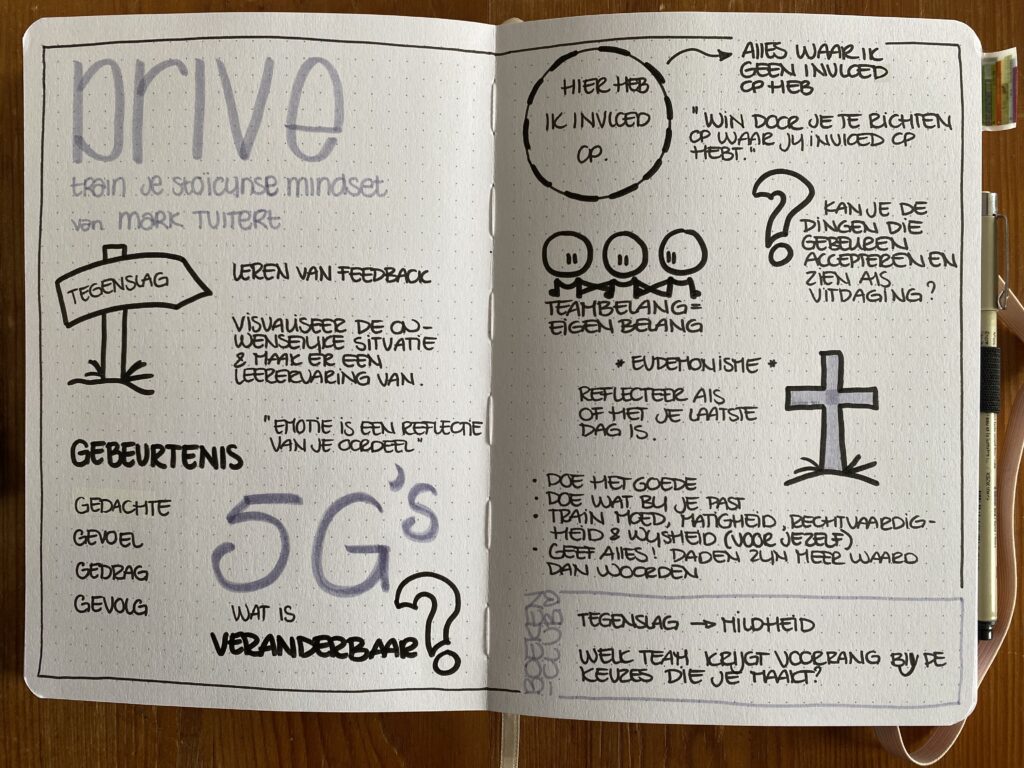 DRIVE
train je stoïcijnse mindset
van MARK TUITERT
TEGENSLAG
LEREN VAN FEEDBACK
VISUALISEER DE ON-
WENSELIJKE SITUATIE
& MAAK ER EEN
LEERERVARING VAN.
"EMOTIE IS EEN REFLECTIE
VAN JE OORDEEL"
GEBEURTENIS
GEDACHTE
GEVOEL
GEDRAG
GEVOLG
5G's
WAT IS
VERANDERBAAR?
HIER HEB
IK INVLOED
OP.
ALLES WAAR IK
GEEN INVLOED
OP HEB
"WIN DOOR JE TE RICHTEN
OP WAAR JIJ INVLOED OP
HEBT."
? KAN JE DE
DINGEN DIE
GEBEUREN
ACCEPTEREN EN
ZIEN ALS
UITDAGING?
TEAMBELANG =
EIGEN BELANG
* EUDEMONISME *
REFLECTEER ALS
OF HET JE LAATSTE
DAG IS.
• DOE HET GOEDE
• DOE WAT BIJ JE PAST
• TRAIN MOED, MATIGHEID, RECHTVAARDIG-
HEID & WIJSHEID (VOOR JEZELF)
• GEEF ALLES! DADEN ZIJN MEER WAARD
DAN WOORDEN
BOEKEN
-CLUB
TEGENSLAG → MILDHEID
WELK TEAM KRIJGT VOORRANG BIJ DE
KEUZES DIE JE MAAKT?